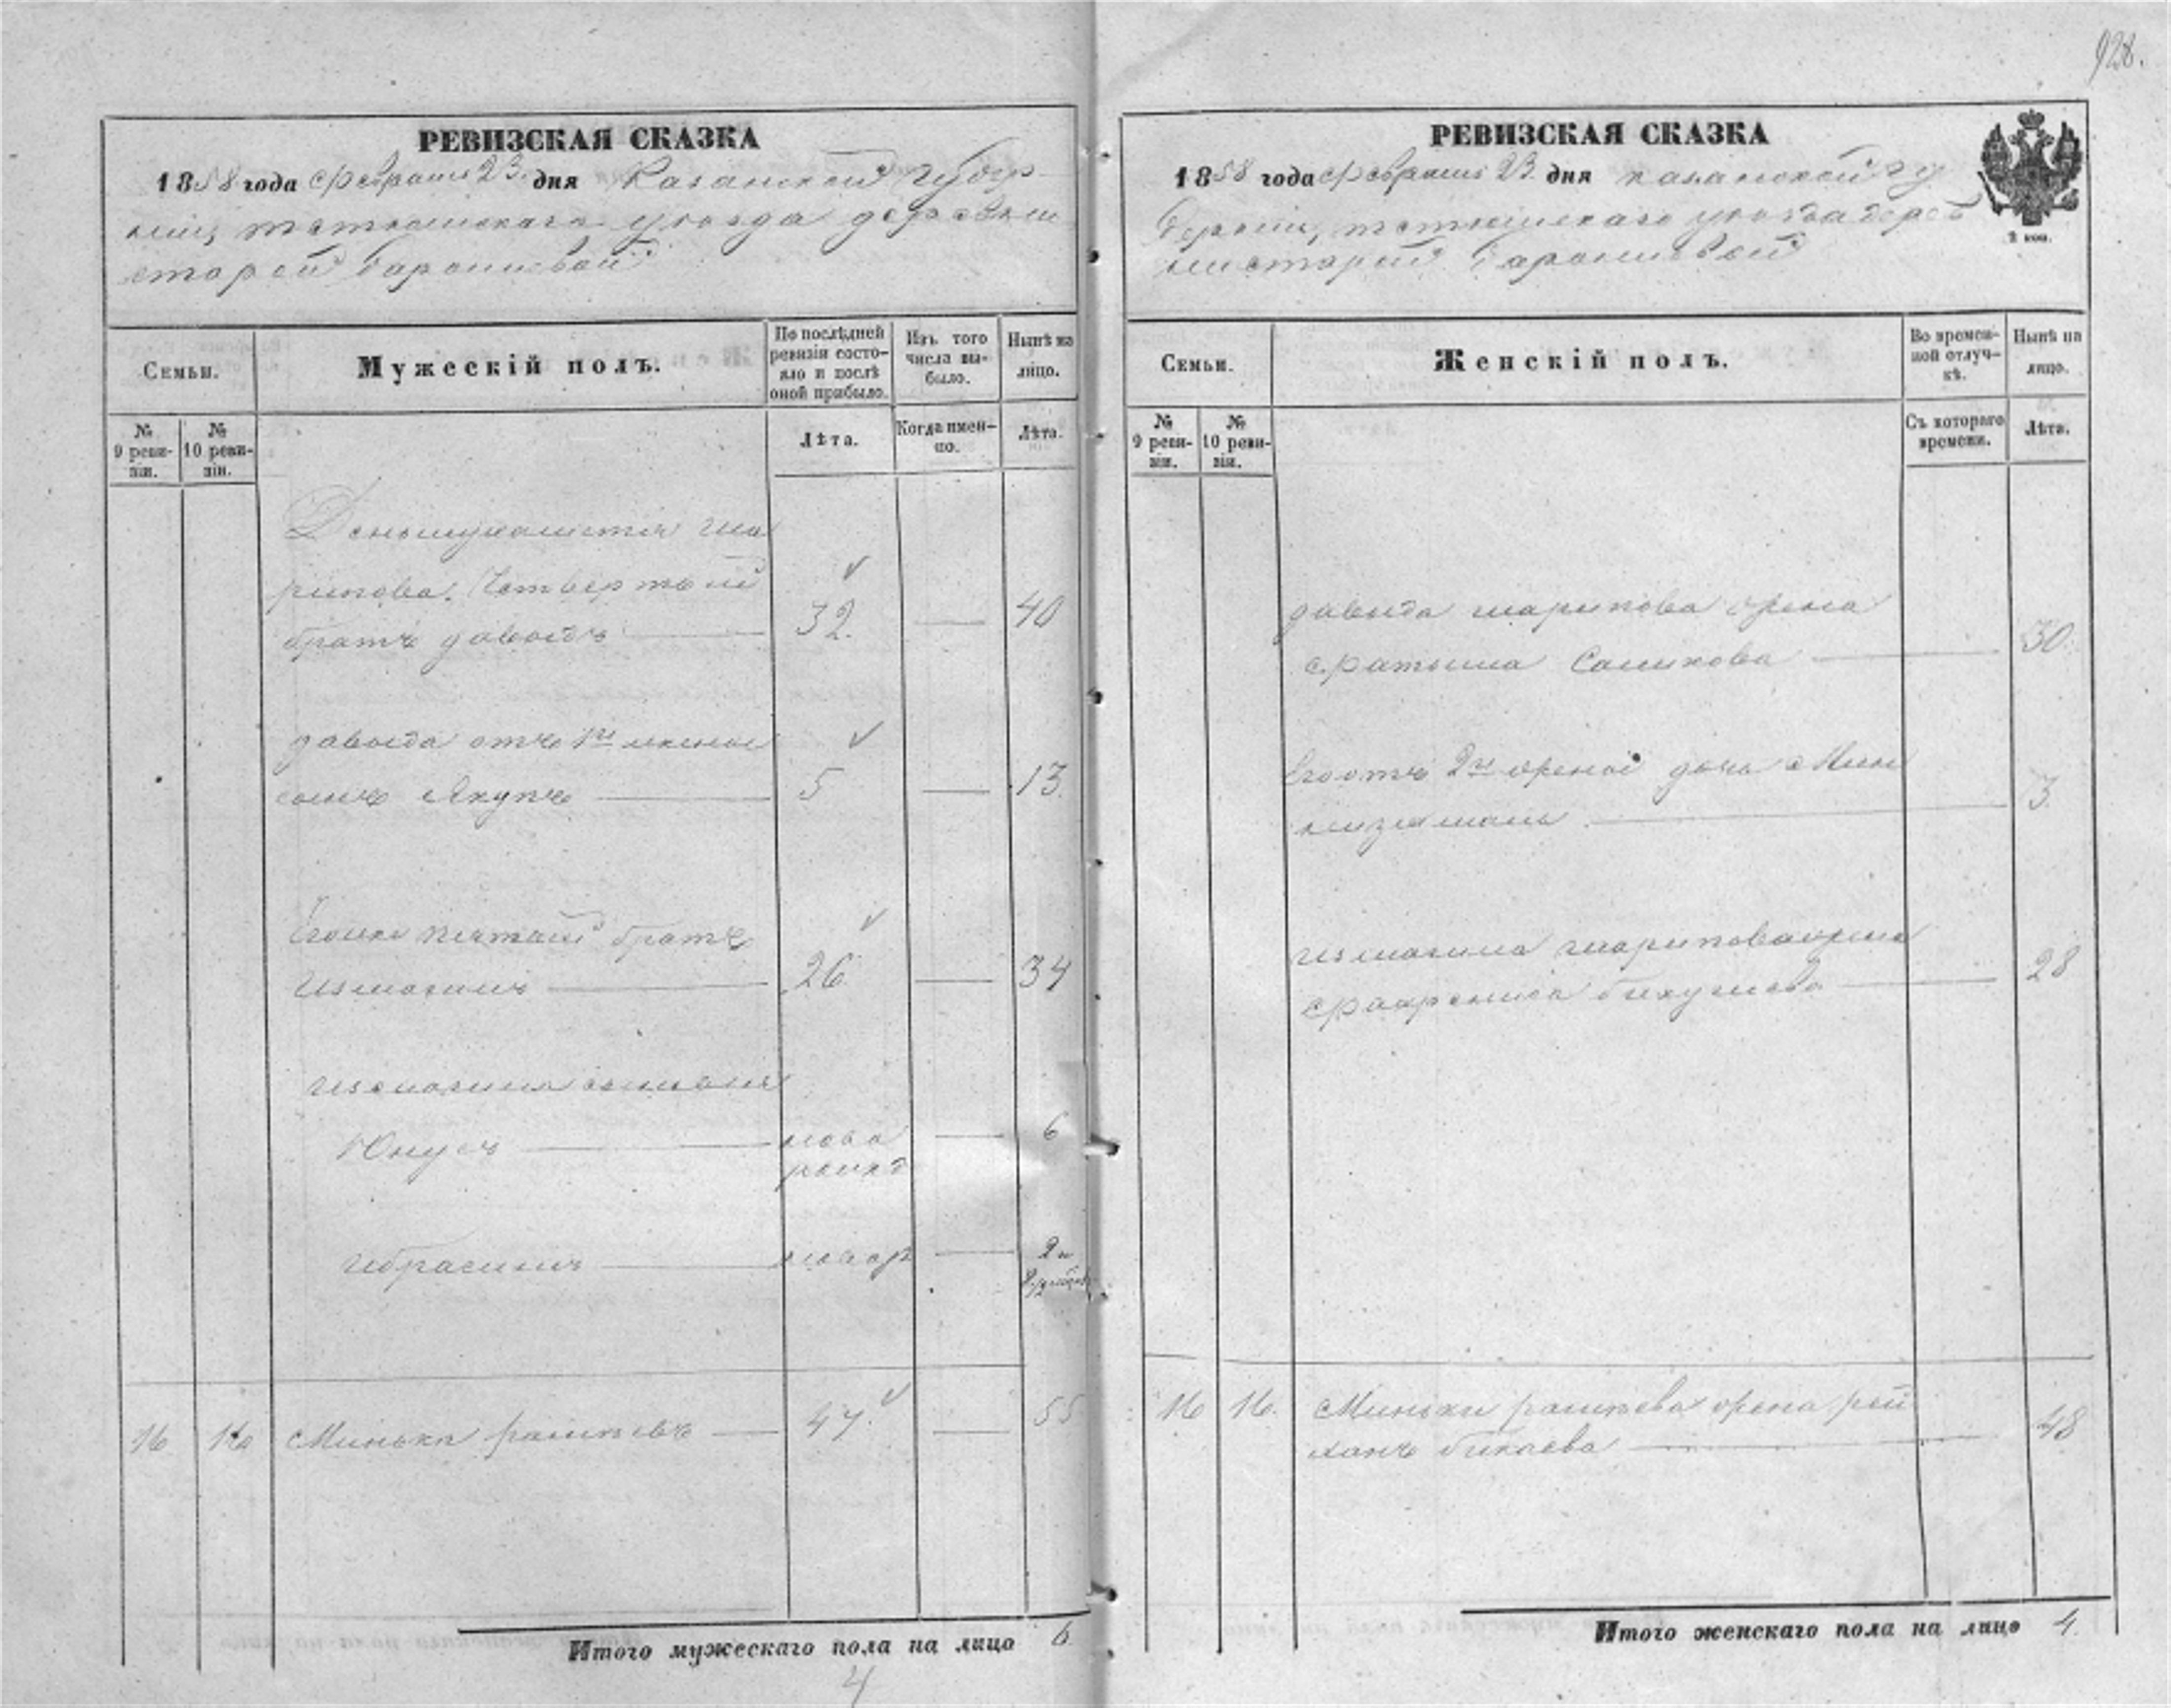 928.
РЕВИЗСКАЯ СКАЗКА
1858 года февраля 23 дня Казанской губер-
нии, тетюшскаго уезда деревни
старой Барышевой
Семьи.
Мужескій полъ.
По послѣдней ревизіи состо-яло и послѣ оной прибыло.
Изъ того числа вы-было.
Нынѣ на лицо.
№ 9 реви-зіи.
№ 10 реви-зіи.
Лѣта.
Когда имен-но.
Лѣта.
Ша
рипова. Четвертый
братъ давыдъ 32. 40
давыда отъ 1й жены
сынъ Якупъ 5 13.
Егоже пятый братъ
Измагилъ 26 34
Измагила сыновья
Юнусъ ново рожд 6
Ибрагимъ новор 2 и
16 16 Минька 47. 55
Итого мужескаго пола на лицо 6
4
РЕВИЗСКАЯ СКАЗКА
1858 года февраля 23 дня казанской гу
берніи, тетюшскаго уезда дерев
ни старой Барышевой
2 коп.
Семьи.
Женскій полъ.
Во времен-ной отлуч-кѣ.
Нынѣ на лицо.
№ 9 реви-зіи.
№ 10 реви-зіи.
Съ котораго времени.
Лѣта.
давыда шарипова жена
фатыма Салихова 30.
Его отъ 2й жены дочь Мин
3.
Измагила шарипова жена
28
16 16. Миньки жена рей
ханъ бикаева 48
Итого женскаго пола на лицо 4.